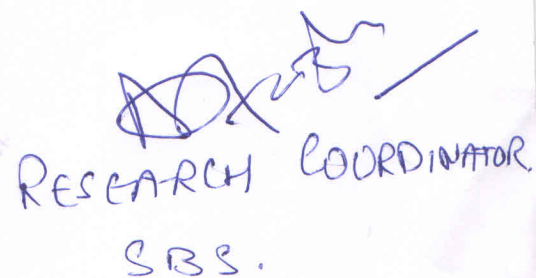 RESEARCH COORDINATOR.
SBS.